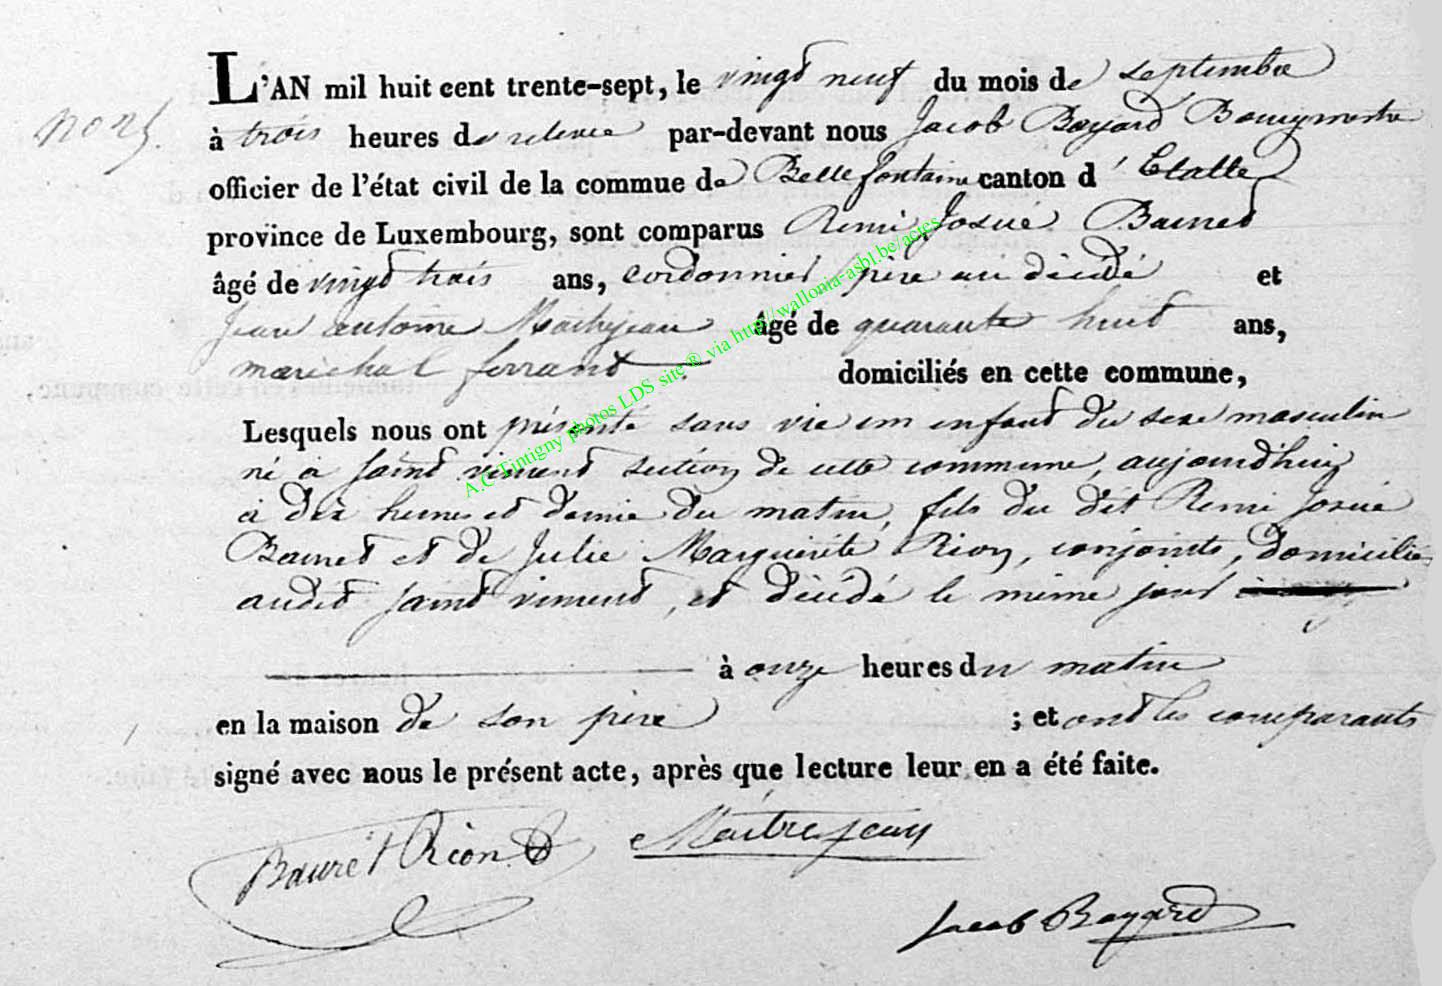 L'AN mil huit cent trente-sept, le vingt neuf du mois de septembre
à trois heures de relevée par-devant nous Jacob Bayard Bourgmestre
officier de l'état civil de la commue de Bellefontaine canton d'Etalle
province de Luxembourg, sont comparus Remi Josué Bauret
âgé de vingt trois ans, cordonnier père au décidé et
Jean antoine Maitrejean âgé de quarante huit ans,
maréchal ferrant. domiciliés en cette commune,
Lesquels nous ont présenté sans vie un enfant du sexe masculin
né à saint vincent section de cette commune, aujourdhuy
à dix heures et demie du matin, fils du dit Remi Josué
Bauret et de Julie Marguerite Rion, conjoints, domiciliés
audit saint vincent, et décidé le même jour
à onze heures du matin
en la maison de son père ; et ont les comparants
signé avec nous le présent acte, après que lecture leur en a été faite.
Bauret Rion Maitrejean
Jacob Bayard
A.C Tintigny photos LDS site ® via http://wallonia-asbl.be/actes